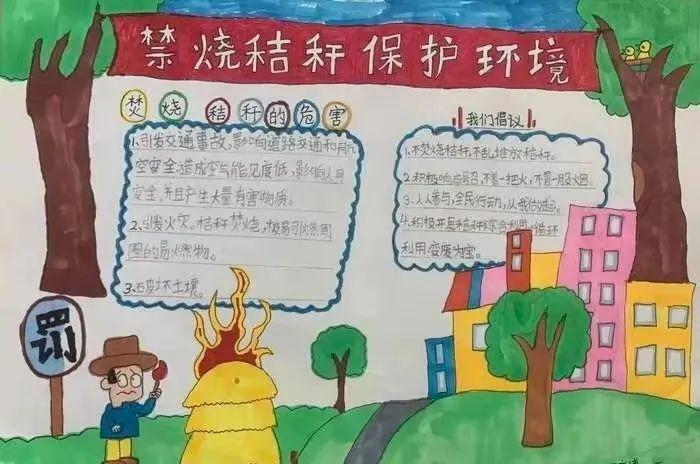 禁烧秸秆保护环境
焚烧秸秆的危害
1、引发交通事故,影响道路交通和航
空安全,造成空气能见度低,影响人身
安全,并且产生大量有害物质。
2、引发火灾。秸秆焚烧,极易引燃周
围的易燃物。
3、破坏土壤。
我们倡议
1、不焚烧秸秆,不乱堆放秸秆。
2、积极响应号召,不着一把火,不冒一股烟。
3、人人参与,全民行动,从我做起。
4、积极开展秸秆综合利用,循环
利用,变废为宝。
罚